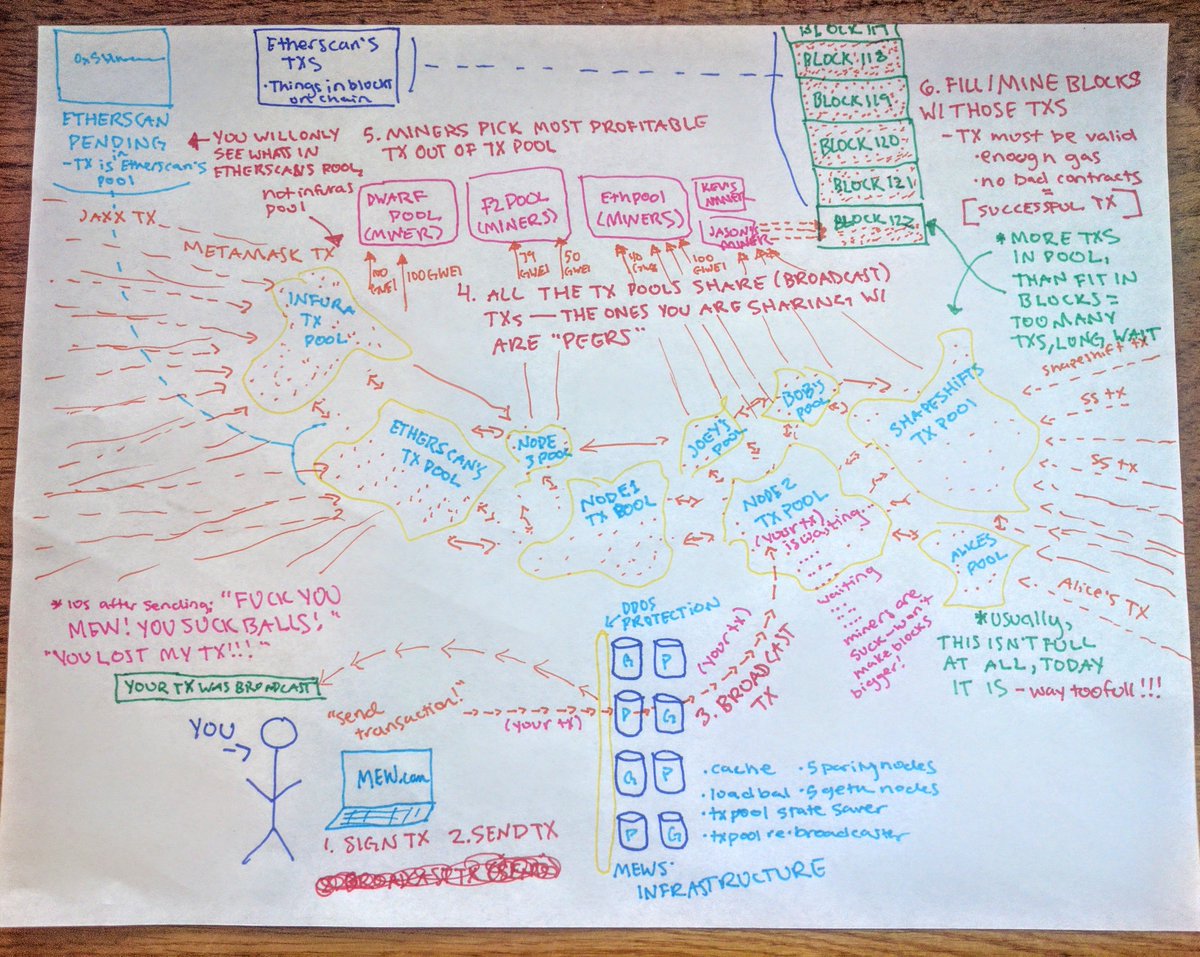 ETHERSCAN
PENDING
- TX is in Etherscan's
pool
Etherscan's
TXS
• Things in blocks
on chain
YOU WILL ONLY
SEE WHATS IN
ETHERSCAN'S POOL,
not infuras
pool
5. MINERS PICK MOST PROFITABLE
TX OUT OF TX POOL
BLOCK 117
BLOCK 118
BLOCK 119
BLOCK 120
BLOCK 121
BLOCK 122
6. FILL/MINE BLOCKS
W/ THOSE TXS
- TX must be valid
• enough gas
• no bad contracts
=
[SUCCESSFUL TX]
* MORE TXS
IN POOL,
THAN FIT IN
BLOCKS =
TOO MANY
TXS, LONG WAIT
DWARF
POOL
(MINER)
F2 POOL
(MINERS)
Ethpool
(MINERS)
KEV'S
MINER
JASON'S
MINER
GWEI
100 GWEI
GWEI
50
GWEI
40
GWEI
100
GWEI
JAXX TX
METAMASK TX
4. ALL THE TX POOLS SHARE (BROADCAST)
TXS — THE ONES YOU ARE SHARING W/
ARE "PEERS"
INFURA
TX
POOL
ETHERSCAN'S
TX POOL
NODE
3 POOL
NODE 1
TX POOL
JOEY'S
POOL
BOB'S
POOL
NODE 2
TX POOL
(your tx)
is waiting
....
....
....
waiting
....
....
miners are
suck - won't
make blocks
bigger!
SHAPESHIFTS
TX POOL
ALICES
POOL
shapeshift tx
SS tx
SS tx
Alice's TX
* Usually,
THIS ISN'T FULL
AT ALL, TODAY
IT IS - way too full!!!
* 10s after sending: "FUCK YOU
MEW! YOU SUCK BALLS!"
"YOU LOST MY TX!!!"
YOUR TX WAS BROADCAST
YOU
"send
transaction!"
(your tx)
MEW.com
1. SIGN TX 2. SEND TX
DDOS
PROTECTION
(your tx)
3. BROADCAST
TX
G P
P G
G P
P G
• cache • 5 parity nodes
• load bal • 5 geth nodes
• txpool state saver
• txpool re-broadcaster
MEWS
INFRASTRUCTURE